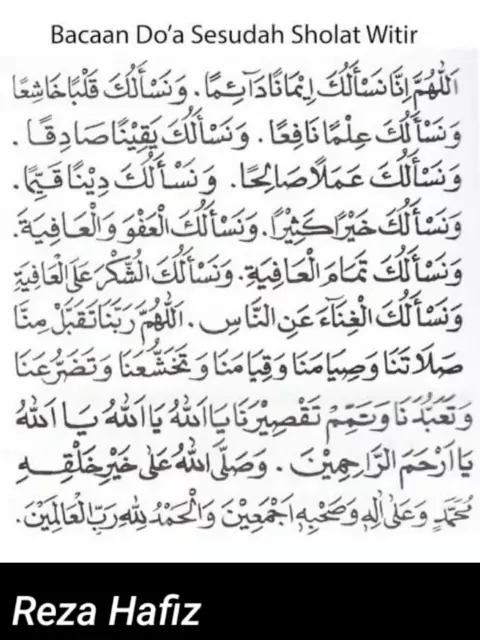 Bacaan Do'a Sesudah Sholat Witir
اَللّٰهُمَّ اِنَّا نَسْأَلُكَ اِيْمَانًا دَائِمًا. وَنَسْأَلُكَ قَلْبًا خَاشِعًا
وَنَسْأَلُكَ عِلْمًا نَافِعًا. وَنَسْأَلُكَ يَقِيْنًا صَادِقًا.
وَنَسْأَلُكَ عَمَلًا صَالِحًا. وَنَسْأَلُكَ دِيْنًا قَيِّمًا.
وَنَسْأَلُكَ خَيْرًا كَثِيْرًا. وَنَسْأَلُكَ الْعَفْوَ وَالْعَافِيَةَ.
وَنَسْأَلُكَ تَمَامَ الْعَافِيَةِ. وَنَسْأَلُكَ الشُّكْرَ عَلَى الْعَافِيَةِ
وَنَسْأَلُكَ الْغِنَاءَ عَنِ النَّاسِ. اَللّٰهُمَّ رَبَّنَا تَقَبَّلْ مِنَّا
صَلَاتَنَا وَصِيَامَنَا وَقِيَامَنَا وَتَخَشُّعَنَا وَتَضَرُّعَنَا
وَتَعَبُّدَنَا وَتَمِّمْ تَقْصِيْرَنَا يَا اَللهُ يَا اَللهُ يَا اَللهُ
يَا اَرْحَمَ الرَّاحِمِيْنَ. وَصَلَّى اللهُ عَلٰى خَيْرِ خَلْقِهِ
مُحَمَّدٍ وَعَلٰى اٰلِهِ وَصَحْبِهِ اَجْمَعِيْنَ وَالْحَمْدُ لِلّٰهِ رَبِّ الْعَالَمِيْنَ.
Reza Hafiz